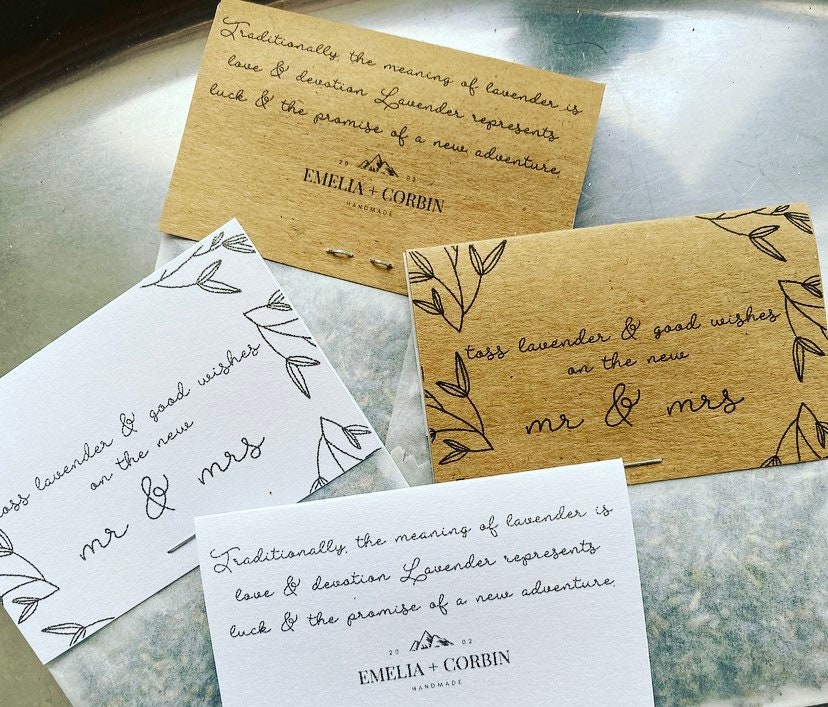 Traditionally the meaning of lavender is
love & devotion Lavender represents
luck & the promise of a new adventure
20 02
EMELIA + CORBIN
HANDMADE
toss lavender & good wishes
on the new
mr & mrs
toss lavender & good wishes
on the new
mr & mrs
Traditionally, the meaning of lavender is
love & devotion Lavender represents
luck & the promise of a new adventure.
20 02
EMELIA + CORBIN
HANDMADE